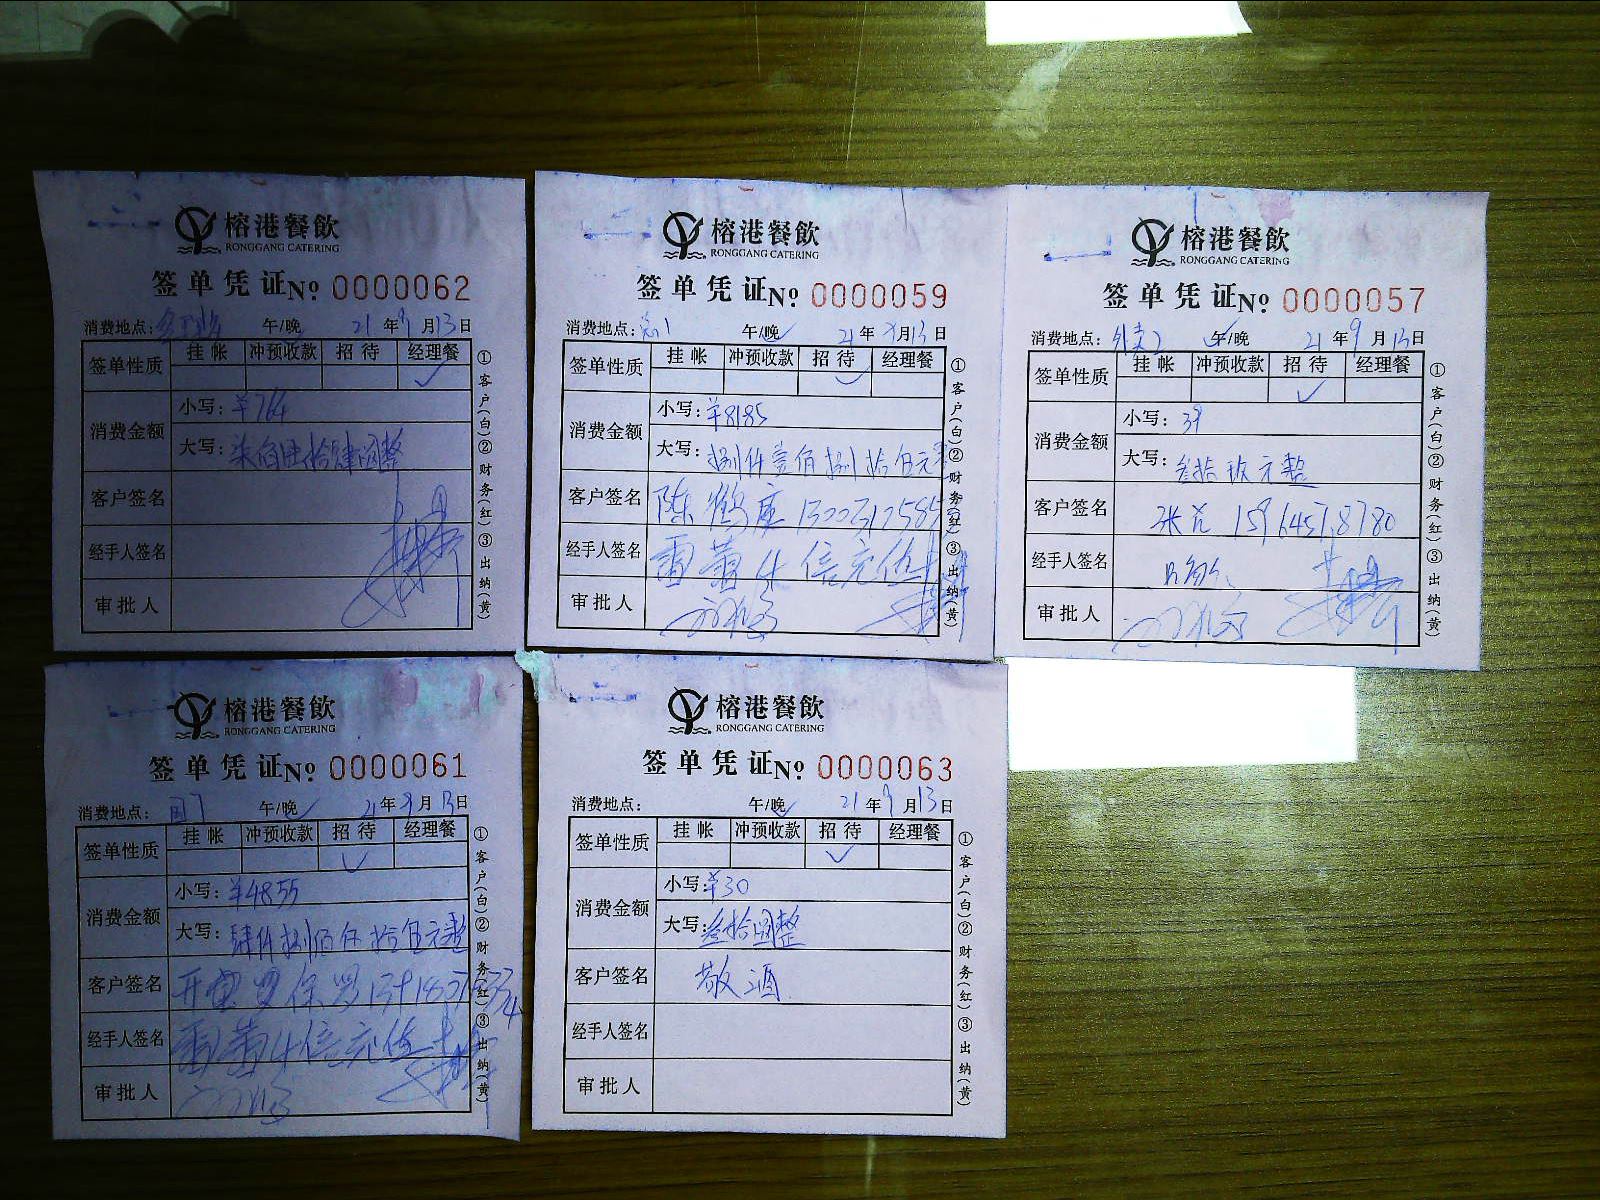 榕港餐飲
RONGGANG CATERING
签单凭证№ 0000062
消费地点: 午/晚 21年9月13日
签单性质 挂帐 冲预收款 招待 经理餐
消费金额 小写:¥764
大写:柒佰陆拾肆圆整
客户签名
经手人签名
审批人
①客户(白)②财务(红)③出纳(黄)
榕港餐飲
RONGGANG CATERING
签单凭证№ 0000059
消费地点: 午/晚 21年9月13日
签单性质 挂帐 冲预收款 招待 经理餐
消费金额 小写:¥8185
大写:捌仟壹佰捌拾伍元整
客户签名 陈鹤
经手人签名 雷萧4倍充值
审批人
①客户(白)②财务(红)③出纳(黄)
榕港餐飲
RONGGANG CATERING
签单凭证№ 0000057
消费地点:外卖2 午/晚 21年9月13日
签单性质 挂帐 冲预收款 招待 经理餐
消费金额 小写:39
大写:叁拾玖元整
客户签名
经手人签名
审批人
①客户(白)②财务(红)③出纳(黄)
榕港餐飲
RONGGANG CATERING
签单凭证№ 0000061
消费地点: 午/晚 21年9月13日
签单性质 挂帐 冲预收款 招待 经理餐
消费金额 小写:¥4855
大写:肆仟捌佰伍拾伍元整
客户签名
经手人签名 雷萧4倍充值
审批人
①客户(白)②财务(红)③出纳(黄)
榕港餐飲
RONGGANG CATERING
签单凭证№ 0000063
消费地点: 午/晚 21年9月13日
签单性质 挂帐 冲预收款 招待 经理餐
消费金额 小写:¥30
大写:叁拾圆整
客户签名 敬酒
经手人签名
审批人
①客户(白)②财务(红)③出纳(黄)